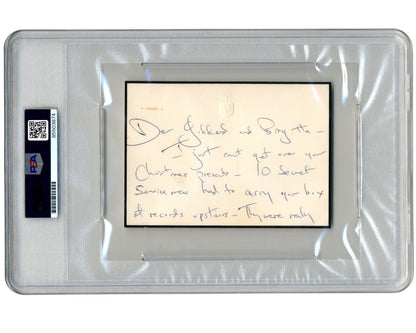 PSA
Dear Goddard and Brigitta —
I just can't get over your
Christmas presents — 10 Secret
Servicemen had to carry your box
of records upstairs — They were really